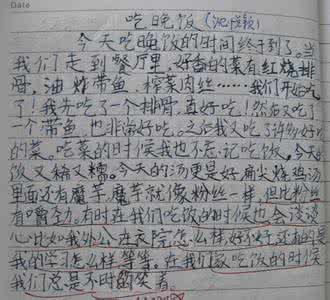 Date
吃晚饭(记段)
今天吃晚饭的时间终于到了。当
我们走到餐厅里,好香的菜有红烧排
骨,油炸带鱼,榨菜肉丝……我们开始吃
了!我先吃了一个排骨,真好吃!然后又吃了
一个带鱼,也非常好吃。之后我又吃了许多好吃
的菜。吃菜的时候我也不忘记吃饭。今天的
饭又稀又糯。今天的汤更是好,扁尖烧鸡汤
里面还有魔芋,魔芋就像粉丝一样,但比粉丝
有嚼劲。有时在我们吃饭的时候也会谈谈
心,比如我外公在医院怎么样,好不好,还有的是
我的学习怎么样等等,在我们吃饭的时候
我们总是不时的笑着。